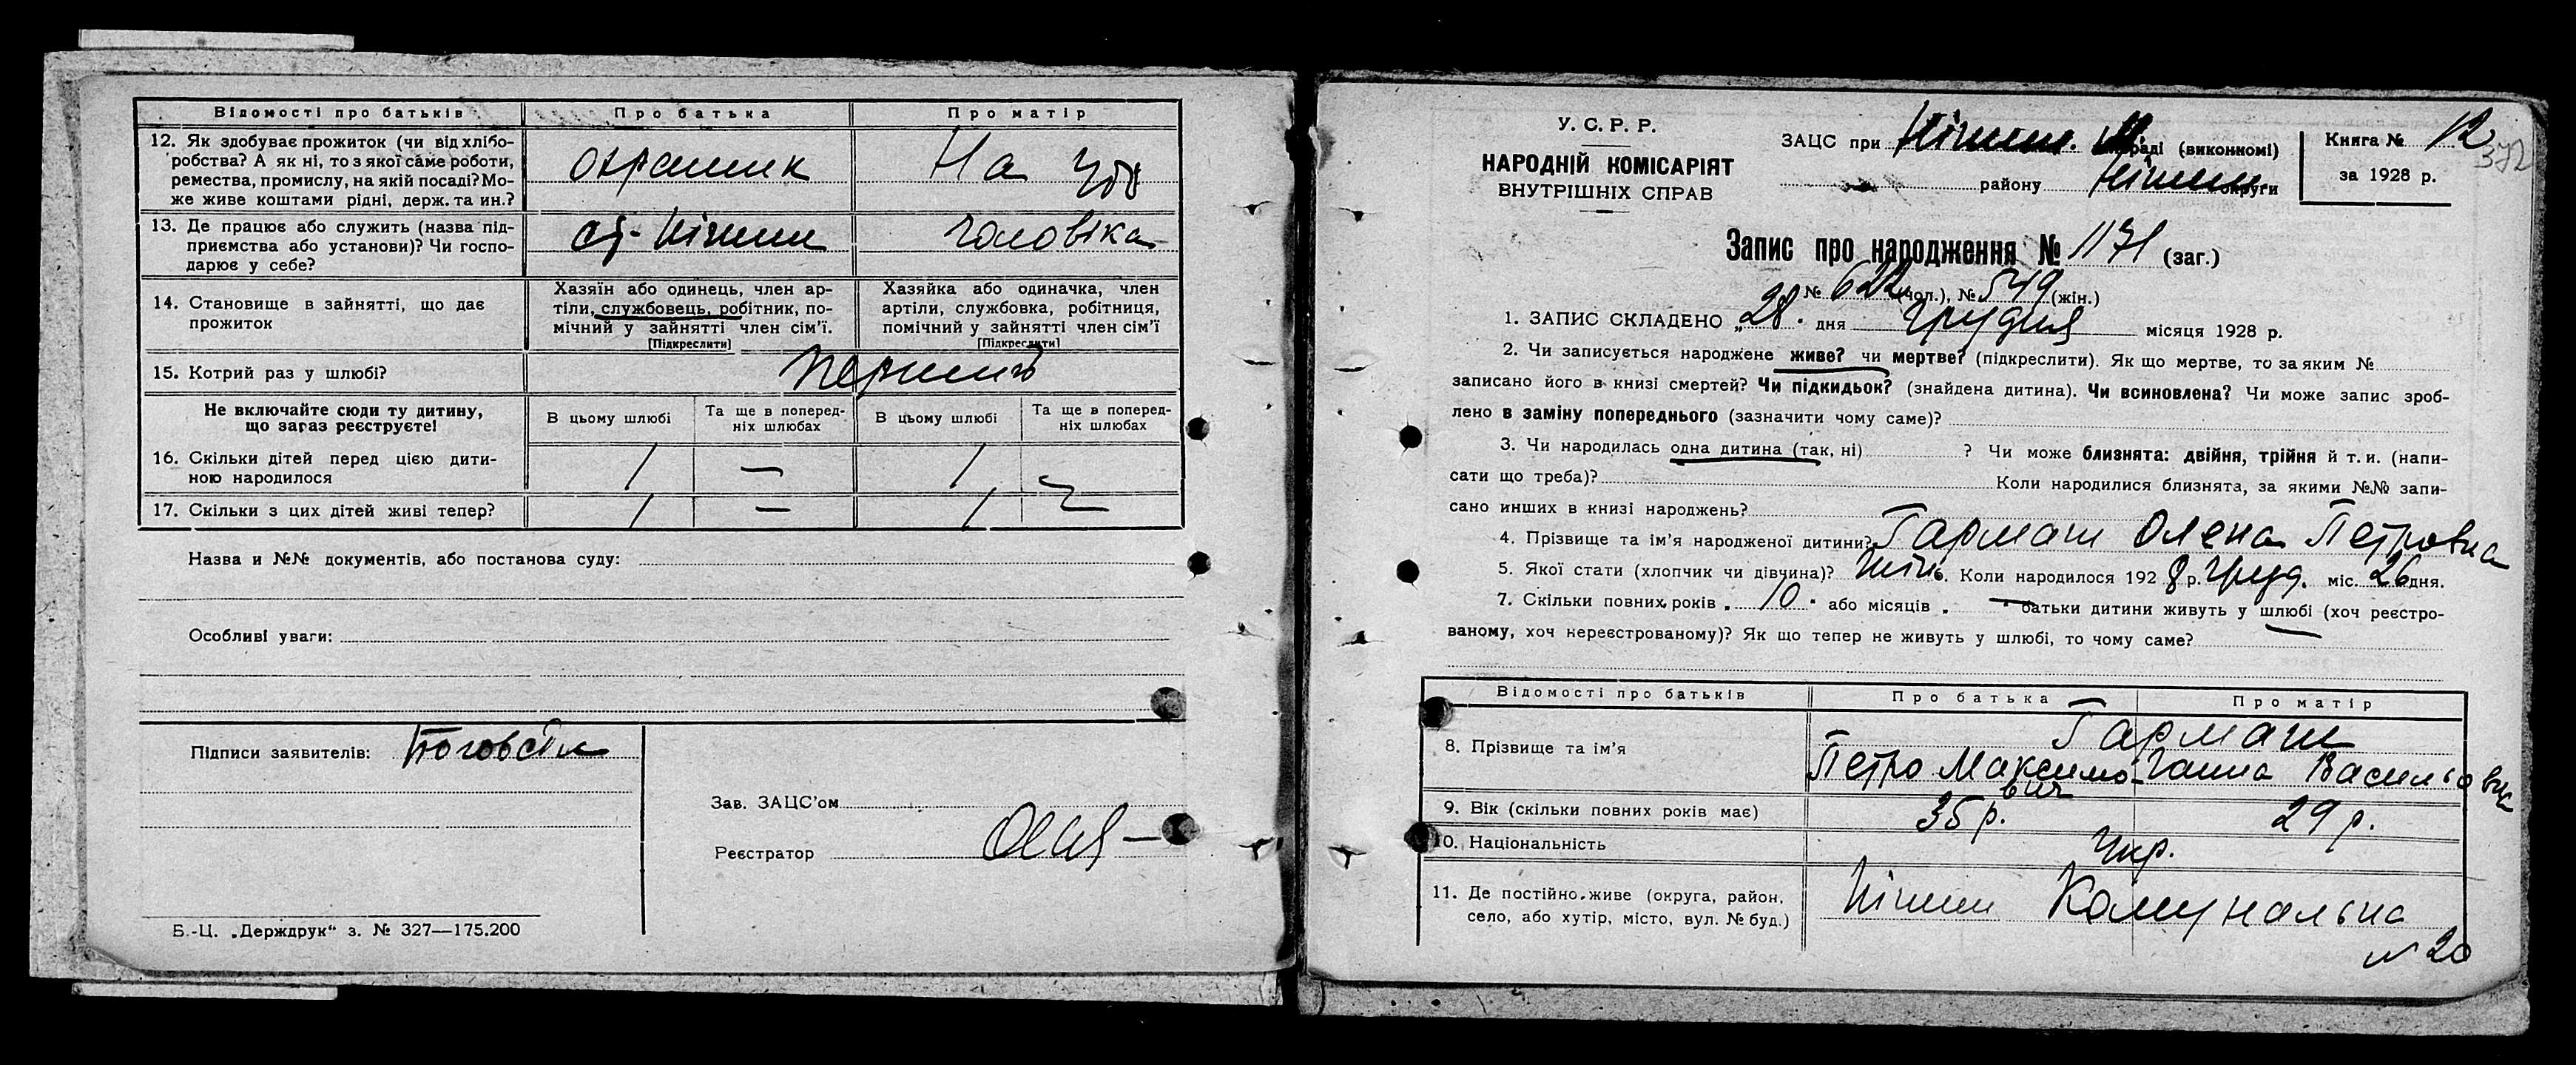 Відомості про батьків Про батька Про матір
12. Як здобуває прожиток (чи від хлібо-
робства? А як ні, то з якої саме роботи,
ремества, промислу, на якій посаді? Мо-
же живе коштами рідні, держ. та ин.?
охраник На
13. Де працює або служить (назва під-
приємства або установи)? Чи госпо-
дарює у себе?
ст. Ніжин чоловіка
14. Становище в зайнятті, що дає
прожиток
Хазяїн або одинець, член ар-
тіли, службовець, робітник, по-
мічний у зайнятті член сім'ї.
[Підкреслити]
Хазяйка або одиначка, член
артіли, службовка, робітниця,
помічний у зайнятті член сім'ї
[Підкреслити]
15. Котрий раз у шлюбі?
Не включайте сюди ту дитину,
що зараз реєструєте!
В цьому шлюбі Та ще в поперед-
ніх шлюбах В цьому шлюбі Та ще в поперед-
ніх шлюбах
16. Скільки дітей перед цією дити-
ною народилося 1 — 1 —
17. Скільки з цих дітей живі тепер? 1 — 1 —
Назва и №№ документів, або постанова суду:
Особливі уваги:
Підписи заявителів:
Зав. ЗАЦС'ом
Реєстратор
Б.-Ц. „Держдрук" з. № 327—175.200
У. С. Р. Р.
НАРОДНІЙ КОМІСАРІЯТ
ВНУТРІШНІХ СПРАВ
ЗАЦС при Ніжин. раді (виконкомі)
району Ніжин округи
Книга № 12
372
за 1928 р.
Запис про народження № 1171 (заг.)
№ 622 (чол.), № 549 (жін.)
1. ЗАПИС СКЛАДЕНО „28" дня Грудня місяця 1928 р.
2. Чи записується народжене живе? чи мертве? (підкреслити). Як що мертве, то за яким №
записано його в книзі смертей? Чи підкидьок? (знайдена дитина). Чи всиновлена? Чи може запис зроб-
лено в заміну попереднього (зазначити чому саме)?
3. Чи народилась одна дитина (так, ні) ? Чи може близнята: двійня, трійня й т. и. (напи-
сати що треба)? Коли народилися близнята, за якими №№ запи-
сано инших в книзі народжень?
4. Прізвище та ім'я народженої дитини? Гармаш Олена Петровна
5. Якої стати (хлопчик чи дівчина)? жін. Коли народилося 1928 р. груд. міс. 26 дня.
7. Скільки повних років „10" або місяців „—" батьки дитини живуть у шлюбі (хоч реєстро-
ваному, хоч нереєстрованому)? Як що тепер не живуть у шлюбі, то чому саме?
Відомості про батьків Про батька Про матір
8. Прізвище та ім'я Гармаш
Петро Максимо-
вич Ганна Васильовна
9. Вік (скільки повних років має) 35 р. 29 р.
10. Національність Укр.
11. Де постійно живе (округа, район,
село, або хутір, місто, вул. № буд.)
Ніжин Комунальна
№ 20